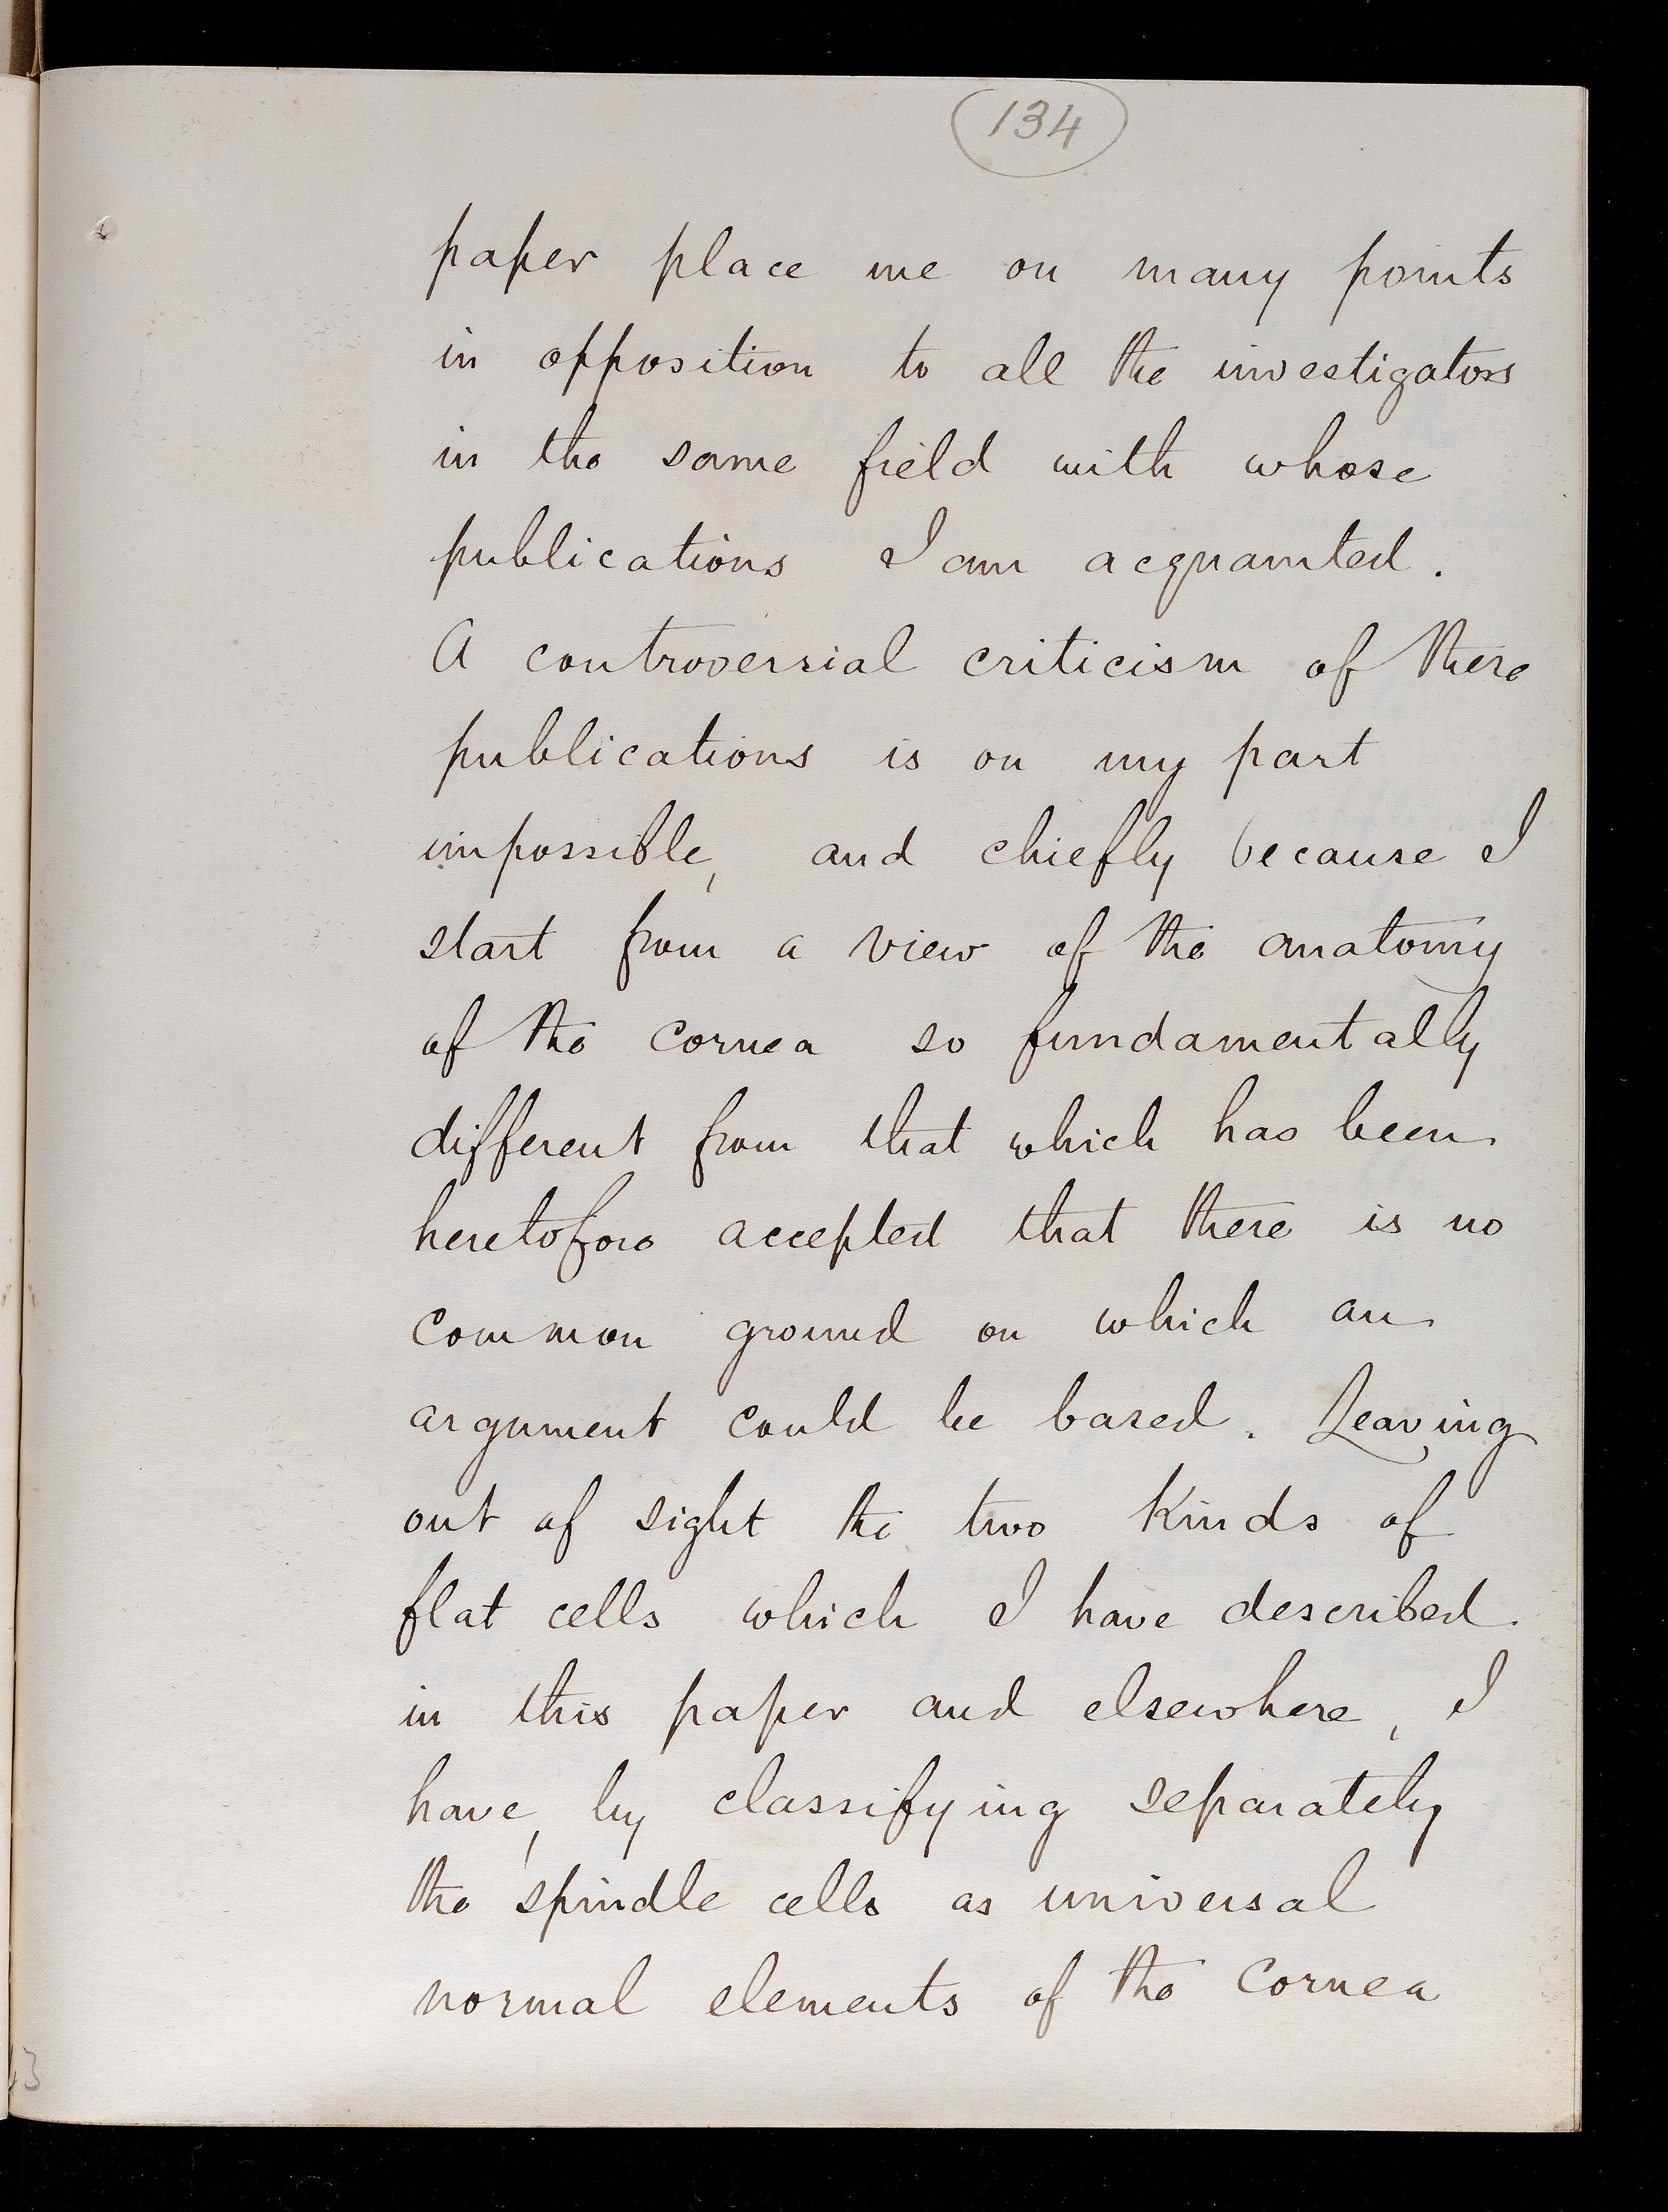 134
paper place me on many points
in opposition to all the investigators
in the same field with whose
publications I am acquainted.
A controversial criticism of these
publications is on my part
impossible, and chiefly because I
start from a view of the anatomy
of the cornea so fundamentally
different from that which has been
heretofore accepted that there is no
common ground on which an
argument could be based. Leaving
out of sight the two kinds of
flat cells which I have described
in this paper and elsewhere, I
have, by classifying separately
the spindle cells as universal
normal elements of the cornea